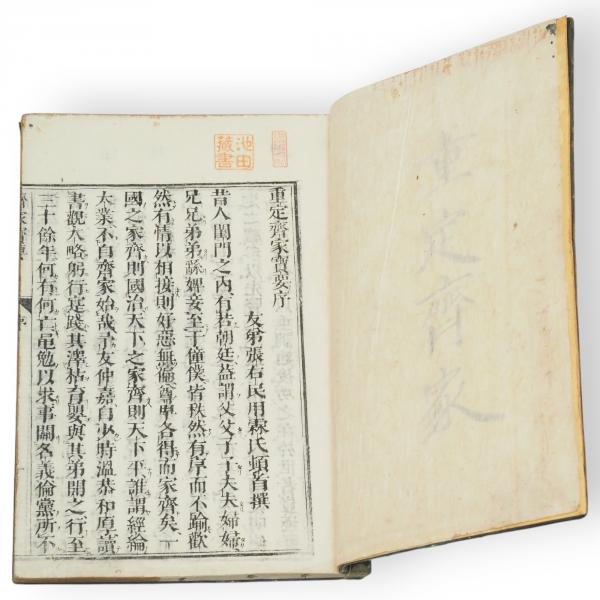 重定齊家
池田
藏書
重定齊家寶要序
友弟張右民用霖氏頓首撰
昔人閨門之內有若朝廷益謂父父子子夫夫婦婦
兄兄弟弟繇婢妾至于僮僕皆秩然有序而不踰歡
然有情以相接則好惡無徧尊卑各得而家齊矣一
國之家齊則國治天下之家齊則天下平誰謂經論
大業不自齊家始哉吾友仲嘉自少時溫恭和厚讀
書觀大略躬行定踐其澤枯育嬰與其弟開之行至
三十餘年何有何亡黽勉以求事關名義倫黨所不
齊家寶要
序